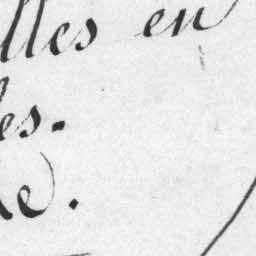 lles en
es.
e.